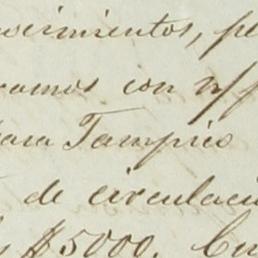 ocimientos, pe
ramos con n/p
para Tampico
de circulaci
$5000. Cu